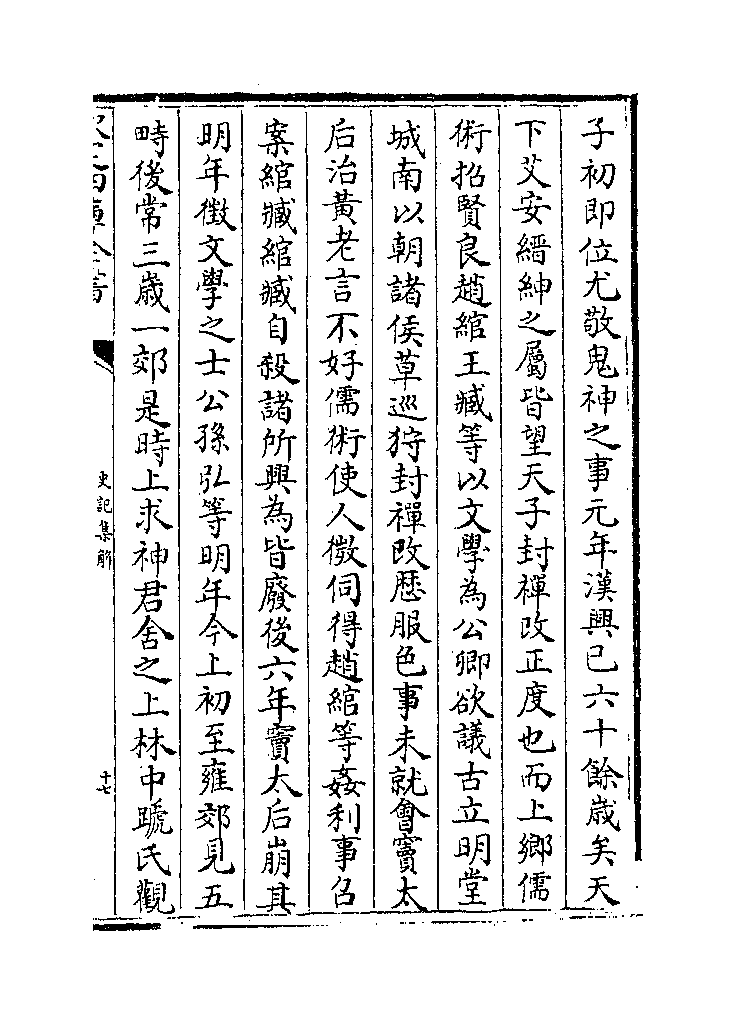 子初即位尤敬鬼神之事元年漢興已六十餘歳矣天
下艾安縉紳之屬皆望天子封禪改正度也而上鄉儒
術招賢良趙綰王臧等以文學為公卿欲議古立明堂
城南以朝諸侯草巡狩封禪改厯服色事未就會竇太
后治黃老言不好儒術使人微伺得趙綰等姦利事召
案綰臧綰臧自殺諸所興為皆廢後六年竇太后崩其
明年徵文學之士公孫弘等明年今上初至雍郊見五
畤後常三歳一郊是時上求神君舍之上林中蹏氏觀
欽定四庫全書
史記集解
十七